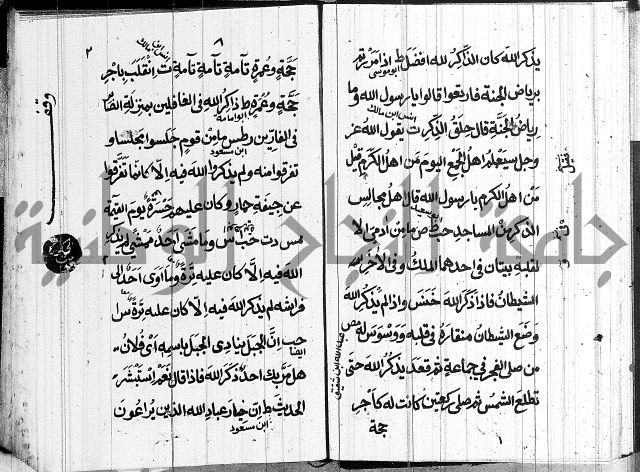 يذكر الله كان الذاكر لله افضل ط اذا مررتم
ابو موسى
برياض الجنة فارتعوا قالوا يا رسول الله وما
انس ابن مالك
رياض الجنة قال حلق الذكر ت يقول الله عز
وجل سيعلم اهل الجمع اليوم من اهل الكرم قيل
من اهل الكرم يا رسول الله قال اهل مجالس
الذكر في المساجد حط ص ما من آدمي الا
لقلبه بيتان في احدهما الملك وفي الاخر
الشيطان فاذا ذكر الله خنس واذا لم يذكر الله
وضع الشيطان منقاره في قلبه ووسوس له مص
عبد الله ابن شقيق
من صلى الفجر في جماعة ثم قعد يذكر الله حتى
تطلع الشمس ثم صلى ركعتين كانت له كاجر
حجة
٢
٨
انس ابن مالك
حجة وعمرة تامة تامة تامة ت انقلب باجر
حجة وعمرة ط ذاكر الله في الغافلين بمنزلة الصابر
ابو امامة
في الفارين رطس ما من قوم جلسوا مجلسا و
ابن مسعود
تفرقوا منه ولم يذكروا الله فيه الا كانما تفرقوا
عن جيفة حمار وكان عليهم حسرة يوم القيمة
مس دت حب س وما مشى احد ممشى لم يذكر
الله فيه الا كان عليه ترة وما اوى احد الى
فراشه لم يذكر الله فيه الا كان عليه ترة س
حب ان الجبل ينادي الجبل باسمه اي فلان
ايضا
هل مر بك احد ذكر الله فاذا قال نعم استبشر
الحديث ط ان خيار عباد الله الذين يراعون
ابن مسعود
وقف
جامعة النجاح الوطنية